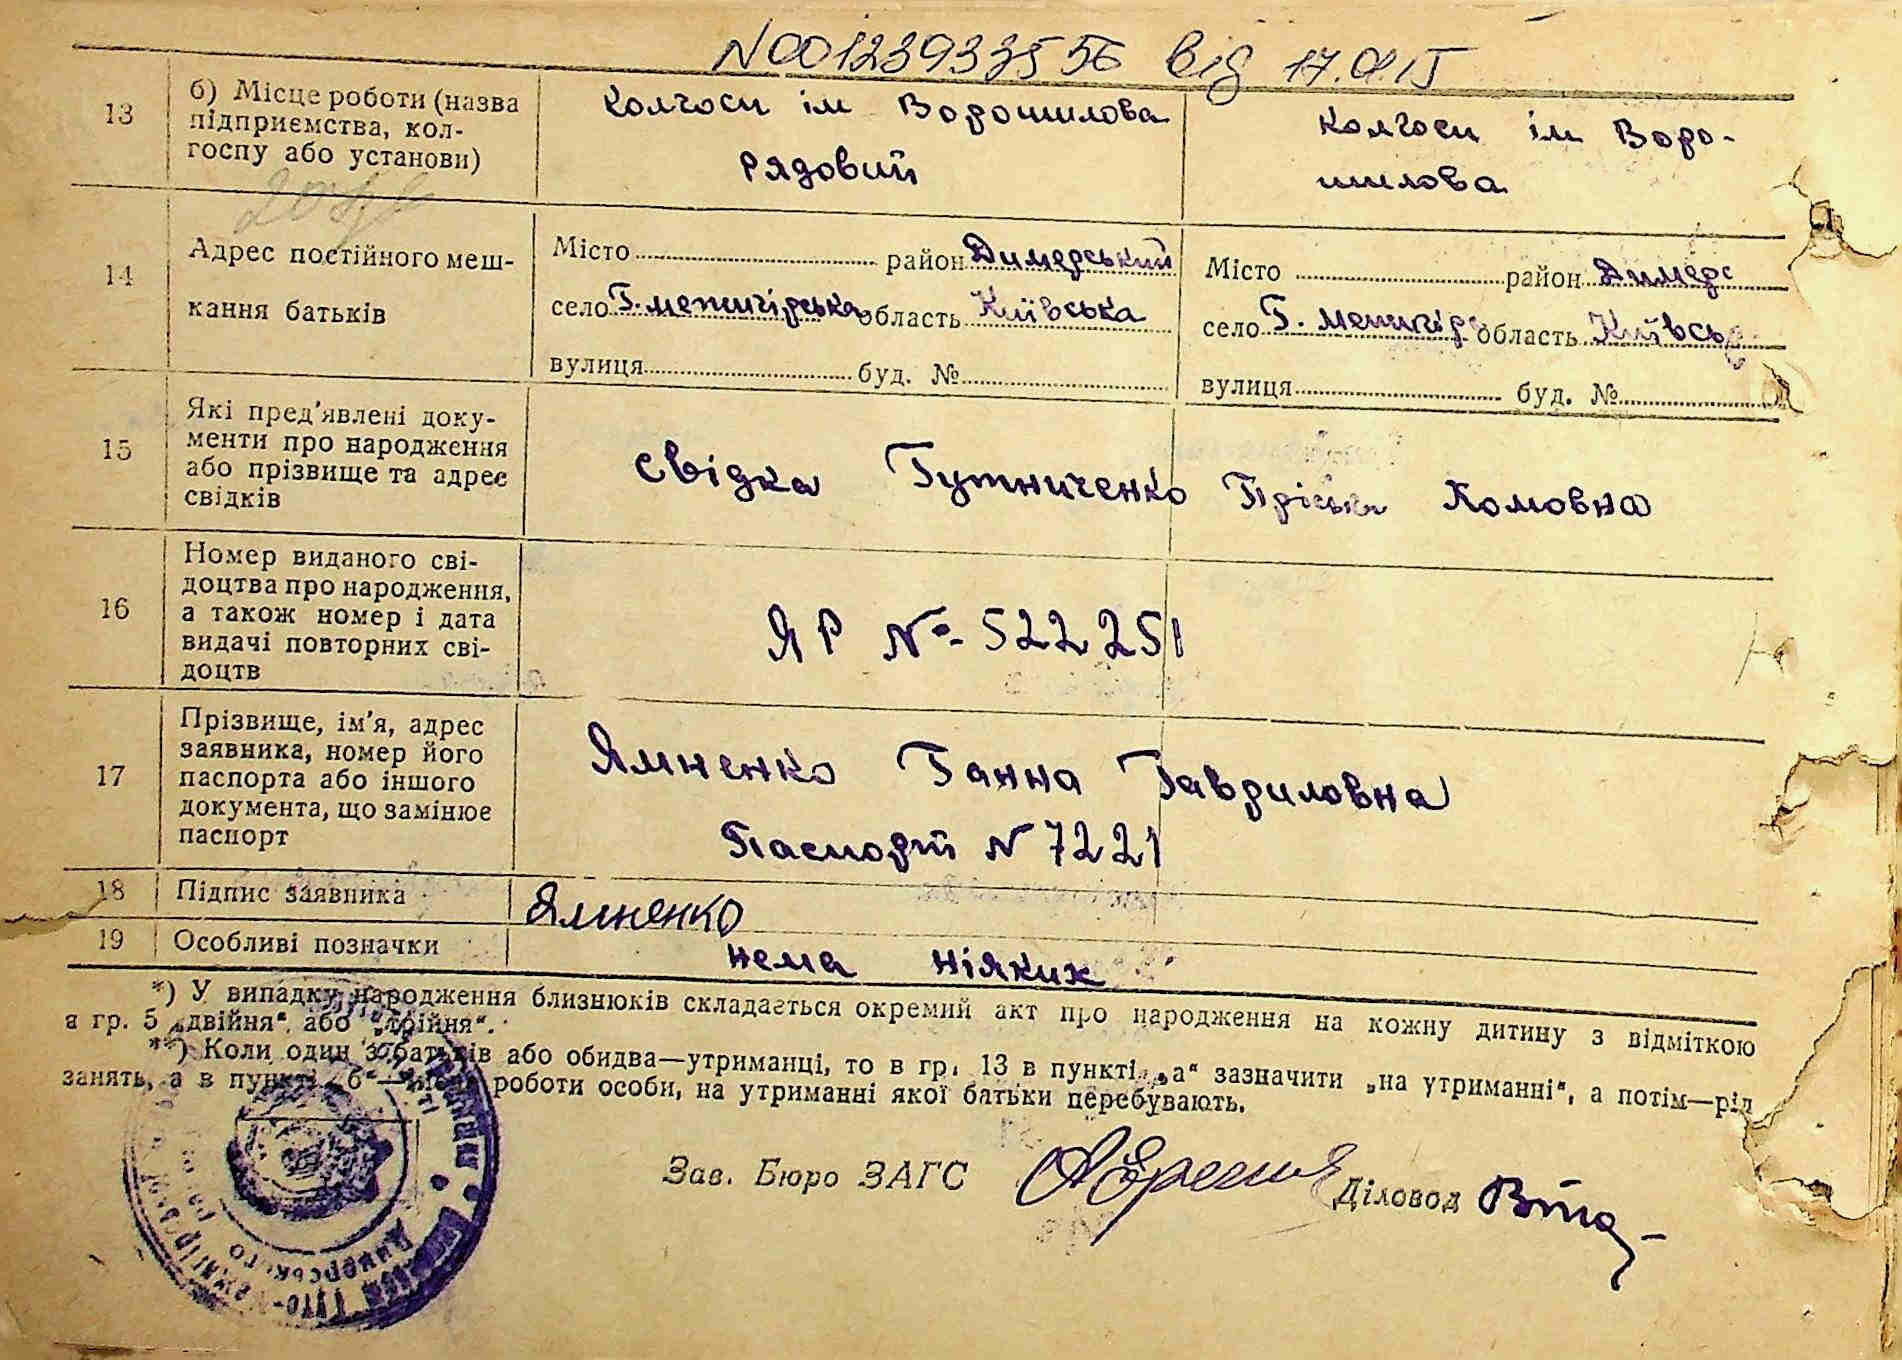 N00123933556 від
13
б) Місце роботи (назва підприємства, колгоспу або установи)
Колгосп ім Ворошилова
рядовий
Колгосп ім Воро-
шилова
14
Адрес постійного меш-
кання батьків
Місто район Димерський
село Г. межигірська область Київська
вулиця буд. №
Місто район Димерс
село Г. межигірс область Київськ
вулиця буд. №
15
Які пред'явлені доку-
менти про народження
або прізвище та адрес
свідків
свідка Гутниченко Пріська Хомовна
16
Номер виданого сві-
доцтва про народження,
а також номер і дата
видачі повторних сві-
доцтв
ЯР №- 522251
17
Прізвище, ім'я, адрес
заявника, номер його
паспорта або іншого
документа, що замінює
паспорт
Ямненко Ганна Гавриловна
Паспорт N 7221
18
Підпис заявника
Ямненко
19
Особливі позначки
нема ніяких
*) У випадку народження близнюків складається окремий акт про народження на кожну дитину з відміткою
в гр. 5 „двійня“ або „трійня“.
**) Коли один з батьків або обидва—утриманці, то в гр. 13 в пункті „а“ зазначити „на утриманні“, а потім—рід
занять, а в пункті „б“—місце роботи особи, на утриманні якої батьки перебувають.
Зав. Бюро ЗАГС
Діловод
Димерського